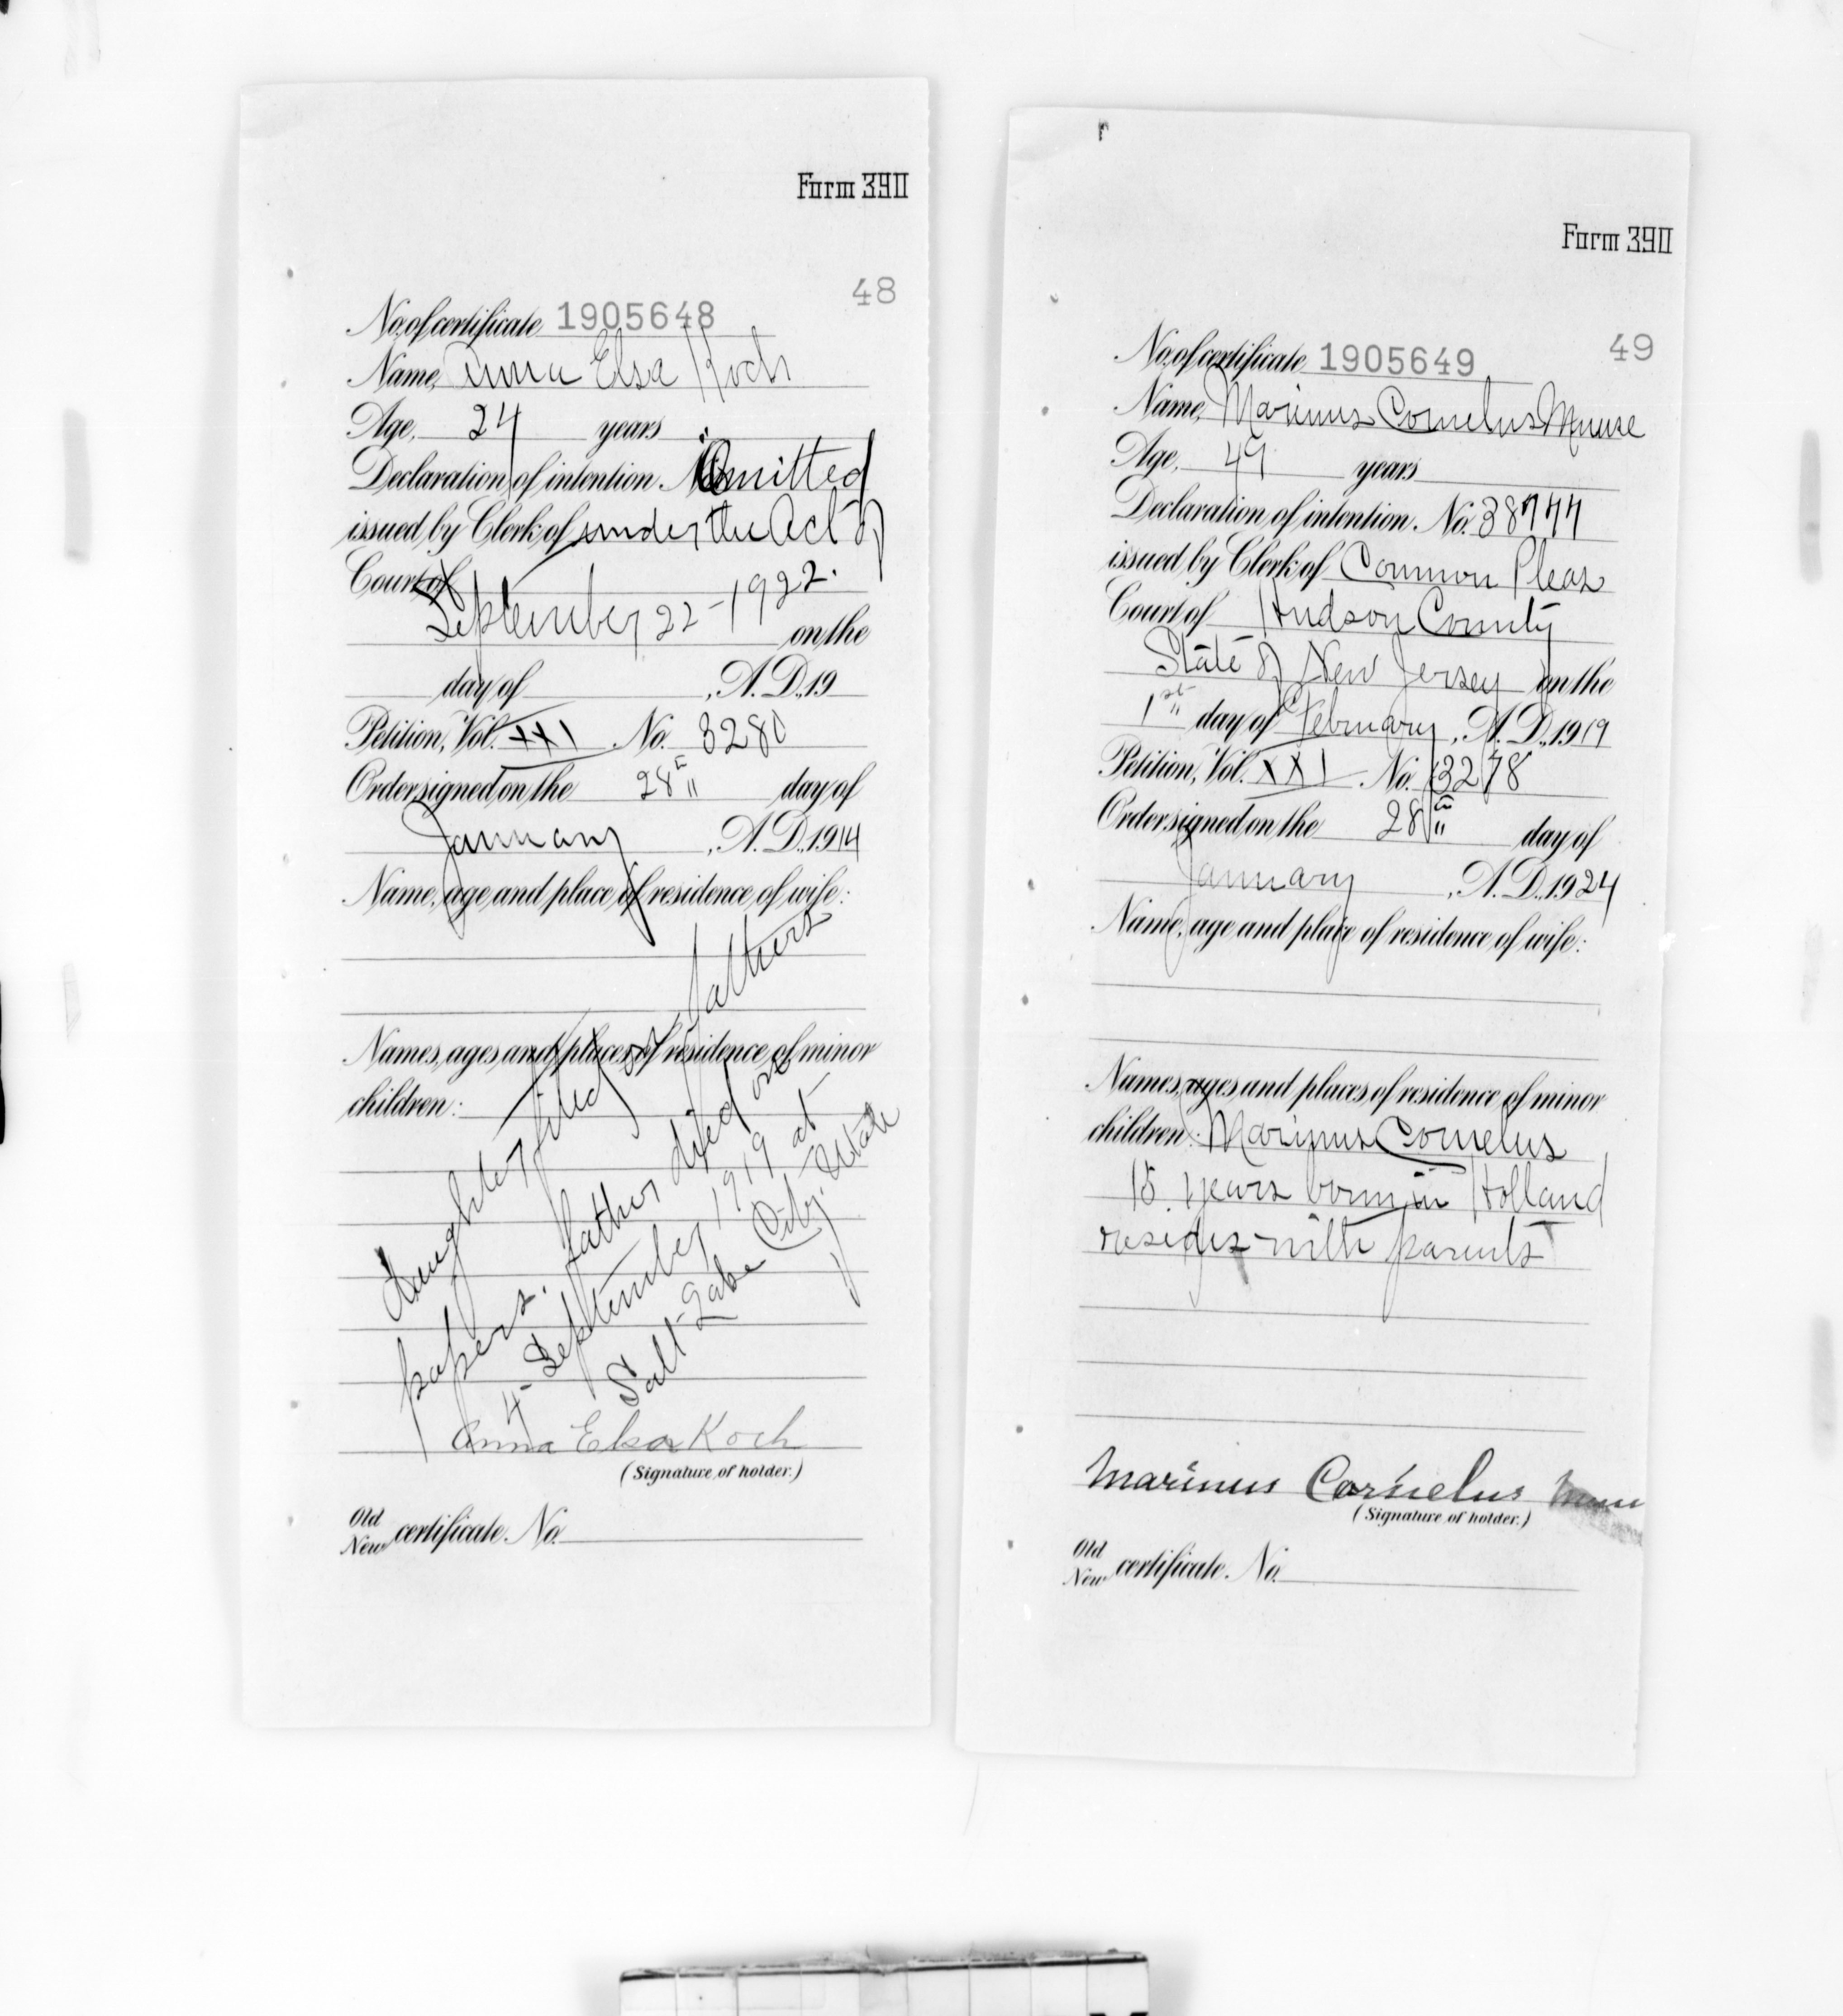 Form 390
48
No. of certificate 1905648
Name, Anna Elsa Koch
Age, 24 years
Declaration of intention. No. Omitted
issued by Clerk of under the Act of
Court of
September 22-1922. on the
day of , A.D., 19
Petition, Vol. XXI No. 3280
Order signed on the 28" day of
January , A.D., 19
Name, age and place of residence of wife:
Names, ages and places of residence of minor
children:
Daughter filed on fathers
papers. father died on
4- September 1919 at
Salt-Lake City-Utah
Anna Elsa Koch
(Signature of holder.)
Old
New certificate No.
Form 390
49
No. of certificate 1905649
Name, Marinus Cornelus
Age, 49 years
Declaration of intention. No. 38744
issued by Clerk of Common Pleas
Court of Hudson County
State of New Jersey on the
1st day of February, A.D., 1919
Petition, Vol. XXI No. 3278
Order signed on the 28" day of
January , A.D., 1924
Name, age and place of residence of wife:
Names, ages and places of residence of minor
children: Marinus Cornelus
15 years born in Holland
resides with parents
Marinus Cornelus
(Signature of holder.)
Old
New certificate. No.